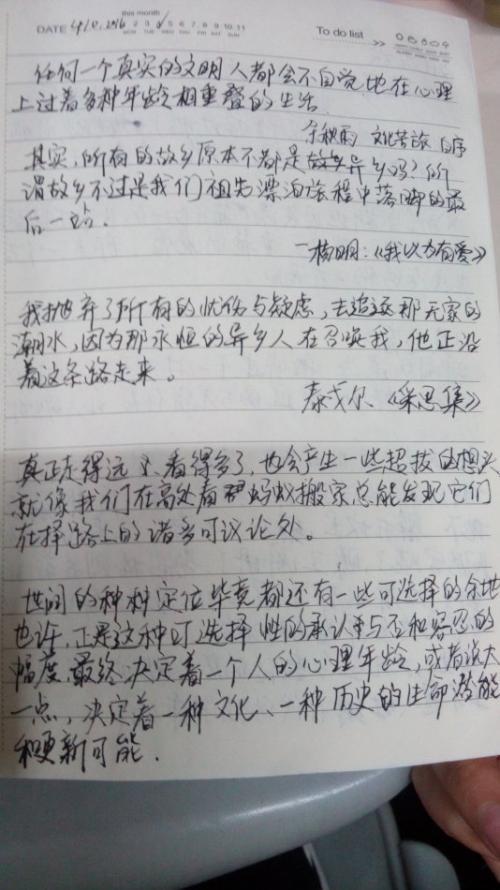 this month
DATE 4/10.2016 2 3 4 5 6 7 8 9 10 11
MON TUE WED THU FRI SAT SUN
To do list >>
任何一个真实的文明人都会不自觉地在心理
上过着多种年龄相重叠的生活
余秋雨 文化苦旅 自序
其实,所有的故乡原本不都是异乡吗?所
谓故乡不过是我们祖先漂泊旅程中落脚的最
后一站.
—杨明:《我以为有爱》
我抛弃了所有的忧伤与疑虑,去追逐那无家的
潮水,因为那永恒的异乡人在召唤我,他正沿
着这条路走来。
泰戈尔《采思集》
真正走得远了、看得多了,也会产生一些超拔的想头
就像我们在高处看蚂蚁搬家总能发现它们
在择路上的诸多可议论处。
世间的种种定位毕竟都还有一些可选择的余地
也许,正是这种可选择性的承认与否和容忍的
幅度,最终决定着一个人的心理年龄,或者说大
一点,决定着一种文化、一种历史的生命潜能
和更新可能.